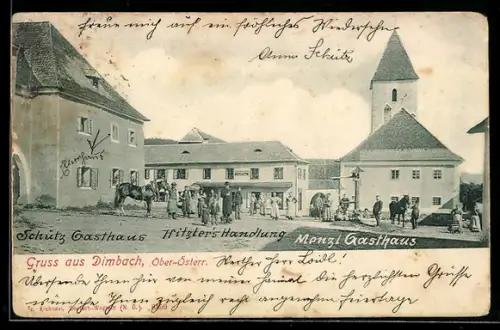 freue mich auf ein fröhliches Wiedersehn
Anna Schütz
Schütz Gasthaus
Hitzler's Handlung
Menzl Gasthaus
Gruss aus Dimbach, Ober-Österr.
Werther Herr Loibl!
Übersende Ihnen hier von meiner Heimat die herzlichsten Grüsse
wünsche Ihnen zugleich recht angenehme Feiertage